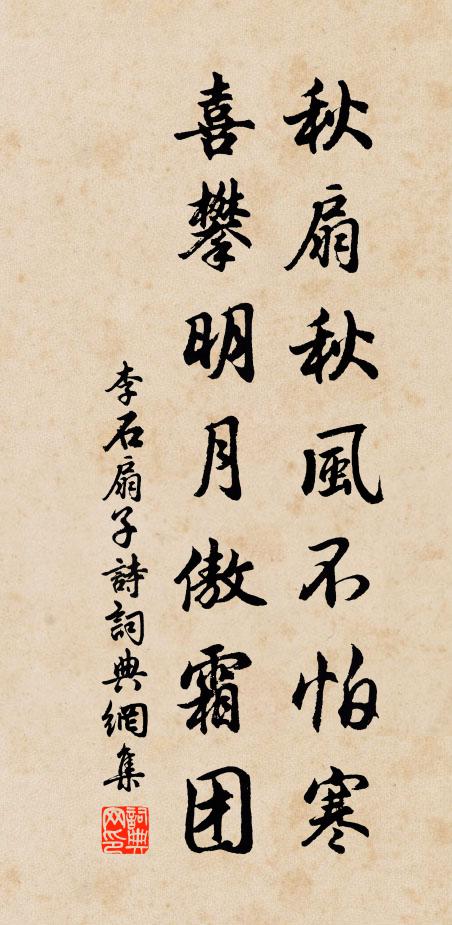 秋扇秋風不怕寒
喜攀明月傲霜团
李石扇子詩詞典網集
詞典网印